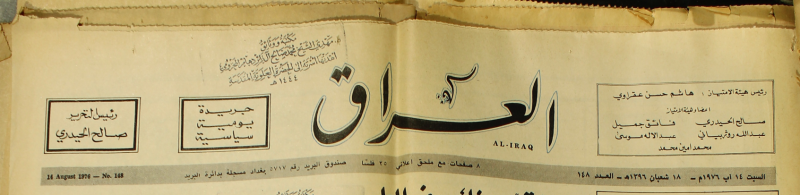 رئيس هيئة الامتياز : هاشم حسن عقراوي
اعضاء هيئة الامتياز
صالح الحيدري فائق جميل
عبدالله روزبياني عبدالاله موسى
محمد امين محمد
العراق
AL-IRAQ
جريدة
يومية
سياسية
رئيس التحرير
صالح الحيدري
السبت ١٤ اب ١٩٧٦م - ١٨ شعبان ١٣٩٦هـ - العدد ١٤٨
٨ صفحات مع ملحق اعلاني ٢٥ فلسا صندوق البريد رقم ٥٧١٧ بغداد مسجلة بدائرة البريد
14 August 1976 — No. 148